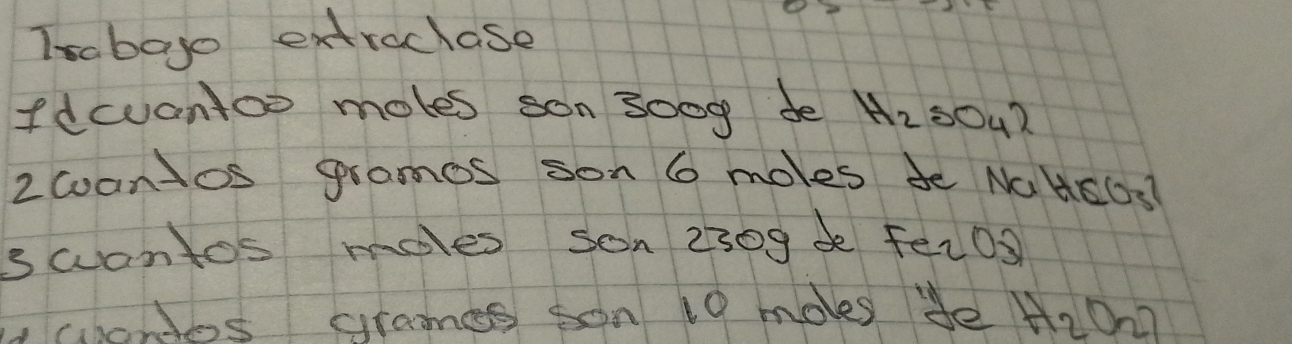 Trabajo extraclase
1¿cuantos moles son 300g de H2SO4?
2 cuantos gramos son 6 moles de NaHCO3?
3 cuantos moles son 230g de Fe2O3
4 cuantos gramos son 10 moles de H2O2?